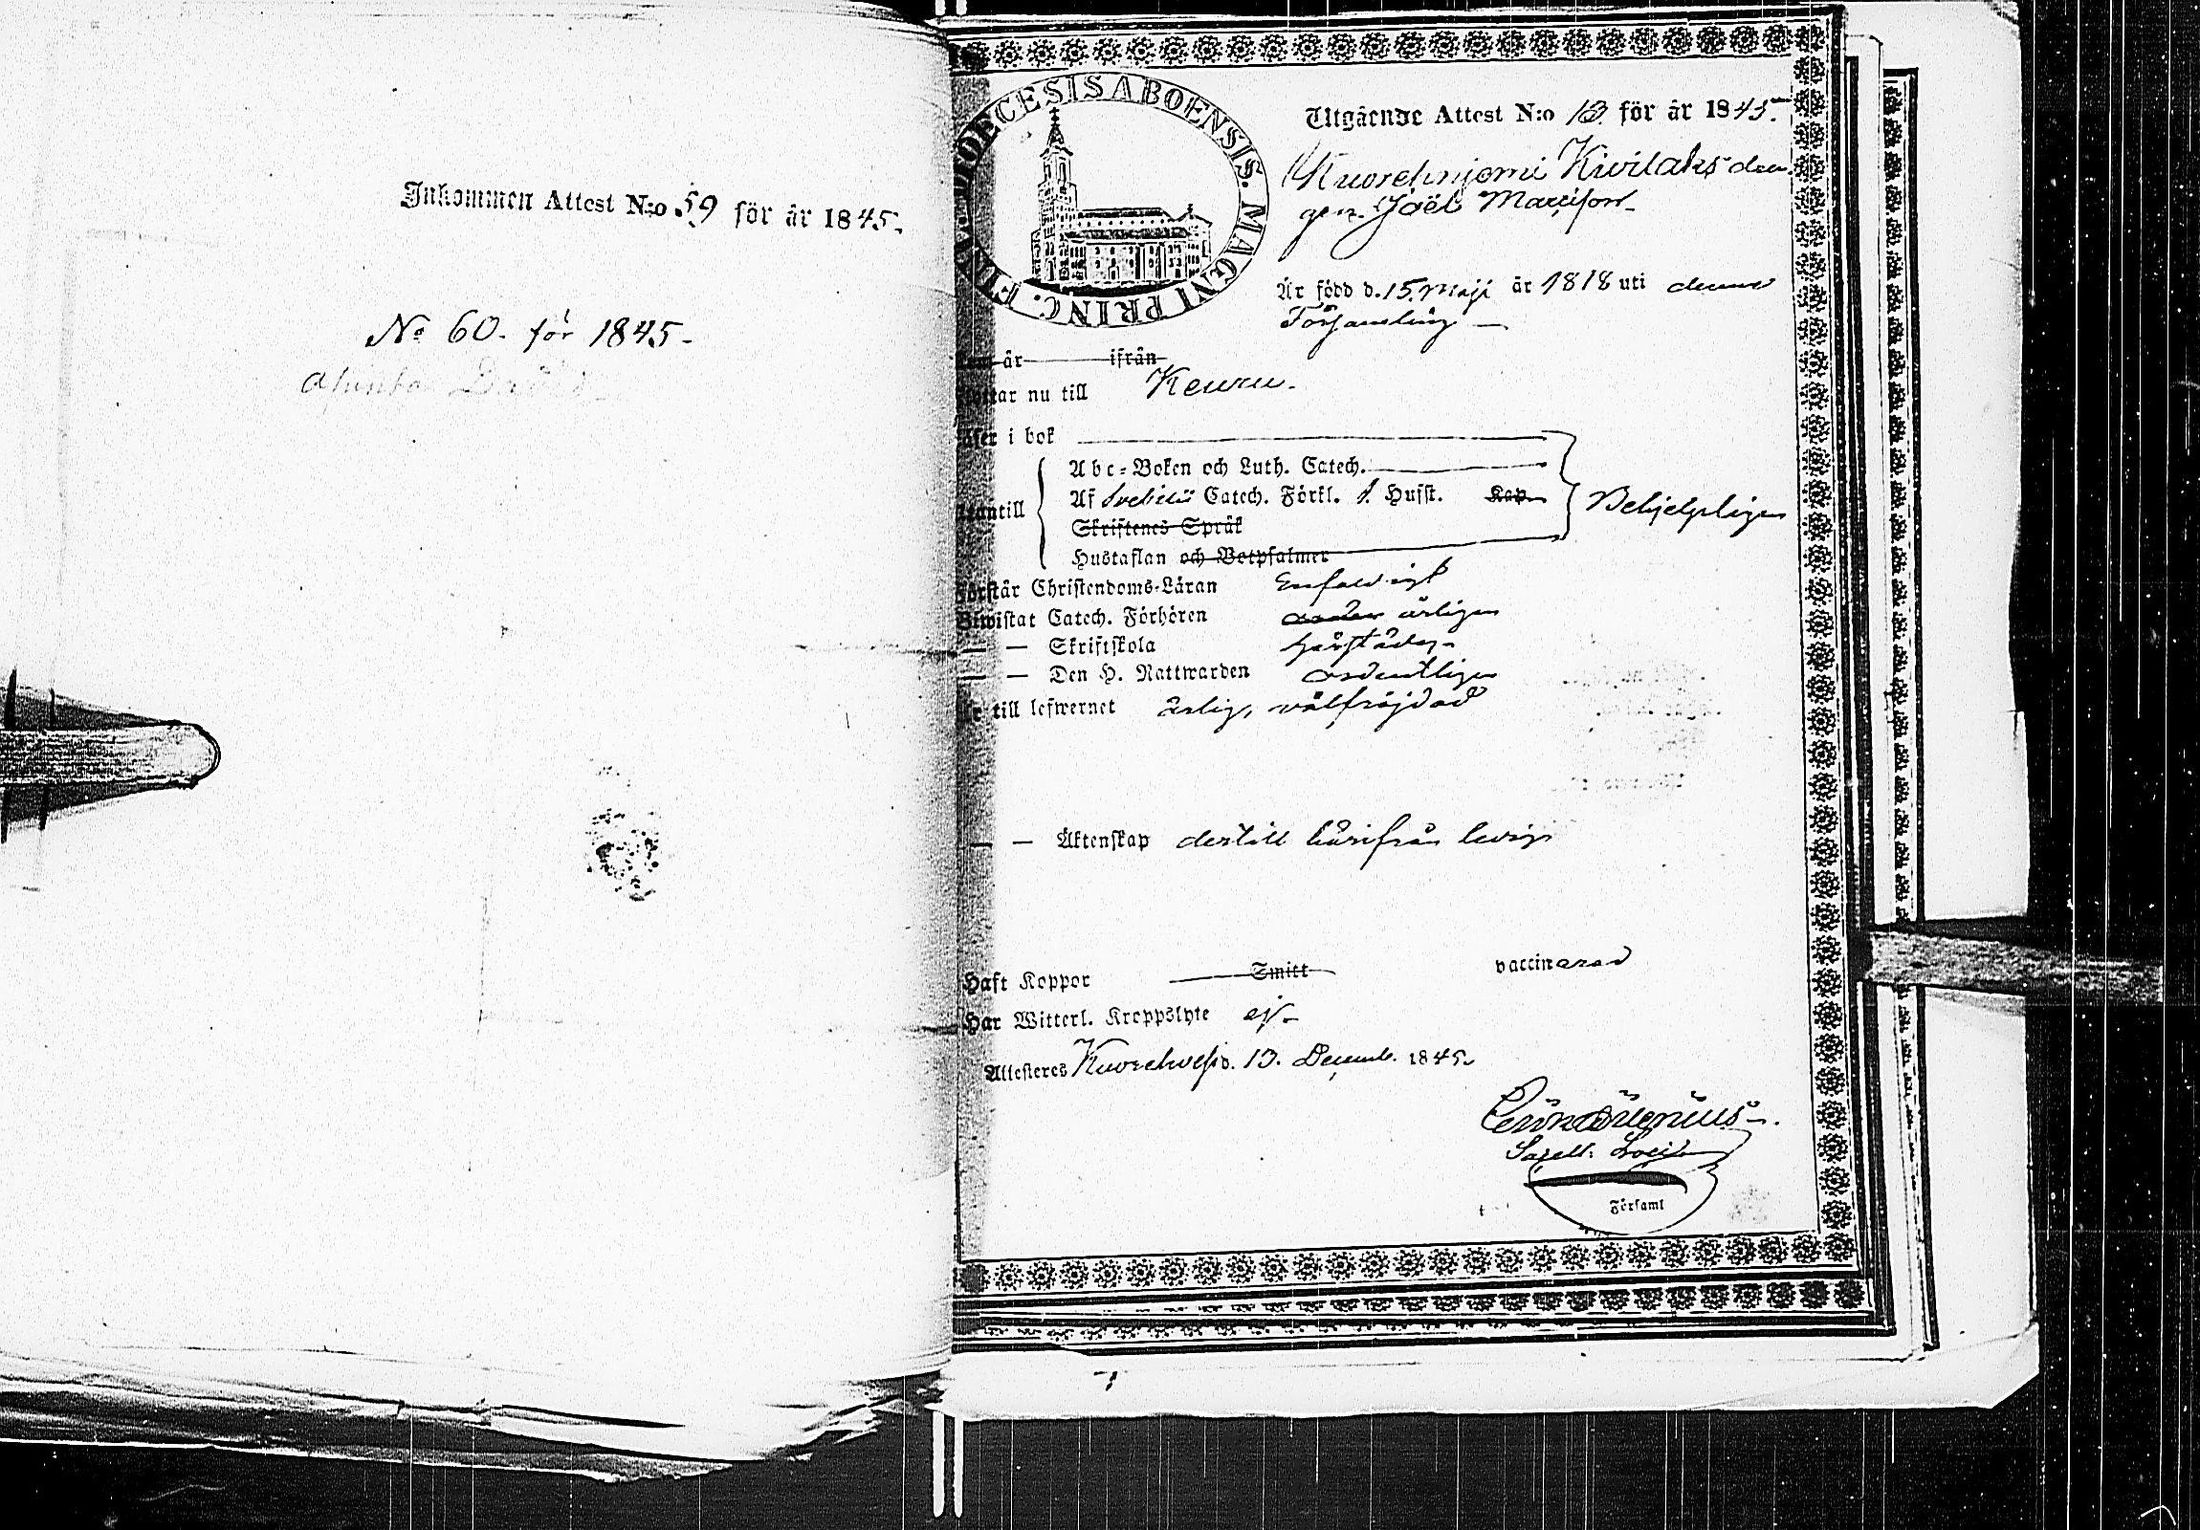 Inkommen Attest N:o 59 för år 1845.
No 60. för 1845.
DIOECESIS ABOENSIS. MAGNI PRINC. FINL.
Utgående Attest N:o 13. för år 1845.
Kuorehnjemi Kivilaks
Joël
Är född d. 15. Maji år 1818 uti denna
Församling
år ifrån
nu till Keuru.
i bok
Abc-Boken och Luth. Catech.
Af Svebilii Catech. Förkl. Husst. Kap.
Behjelpligen
Skriftenes Språk
Hustaflan och Botpsalmer
Förstår Christendoms-Läran Enfaldigt
Biwistat Catech. Förhören årligen
— — Skriftskola härstädes
— — Den H. Nattwarden ordentligen
Är till lefwernet ärlig, välfräjdad
— — Äktenskap dertill härifrån ledig
Haft Koppor Smitt vaccinerad
Har Witterl. Kroppslyte ej
Attesteras Kuorehvesi d. 13. Decemb. 1845
Sacell.
Församl